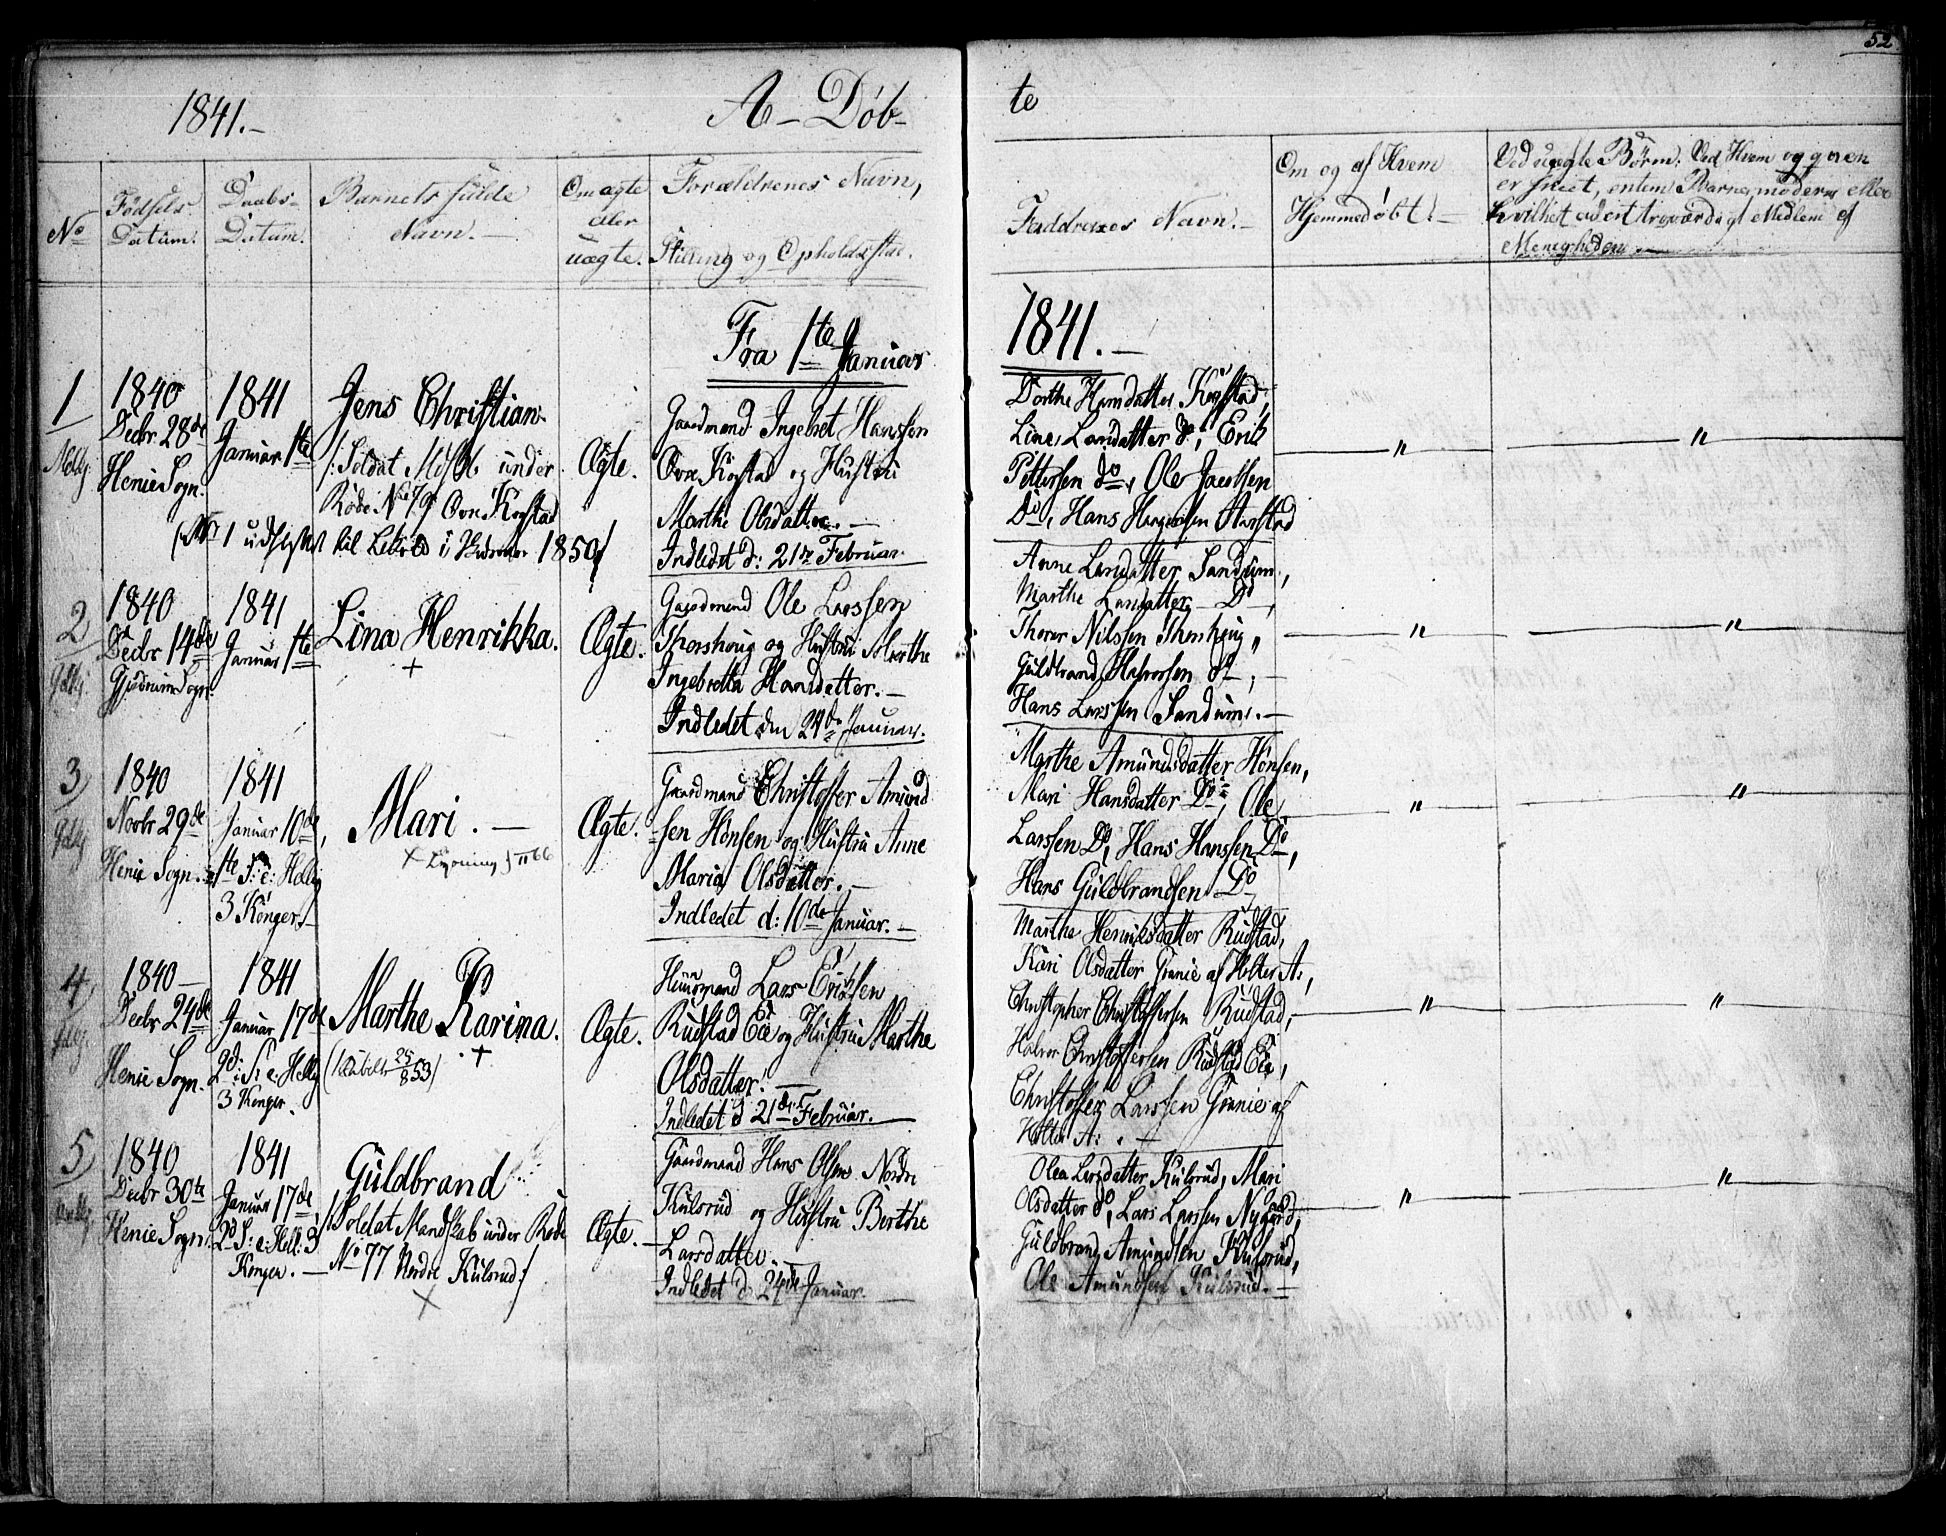 52
1841.-
A - Døb-
te
No
Fødsels
Datum.
Daabs-
Datum.
Barnets fulde
Navn.-
Om ægte
eller
uægte.
Forældrenes Navn,
Stilling og Opholdsstæd.
Faddrenes Navn.-
Om og af Hvem
Hjemmedøbt.-
Ved uægte Børn. Ved Hvem
er skeet, enten Barnemoderen eller
et troværdigt Medlem af
Menigheden
Fra 1te Januar
1841.-
1
1840
Decbr 28de
Henie Sogn.
1841
Januar 1te
Jens Christian.
/: Soldat under
Røde No 79 Ovre Kogstad
1850/
Ægte.
Gaardmand Ingebret Hanssen
Ovre Kogstad og Hustru
Marthe Olsdatter.-
Indledet d: 21de Februar.
Dorthe Hansdatter Kogstad,
Lina Larsdatter do, Erik
Pettersen do, Ole Jacobsen
Do, Hans Haagensen Aarstad
"
"
2
1840
Decbr 14de
Gjødrum Sogn.
1841
Januar 1te
Lina Henrikka.
+
Ægte.
Gaardmand Ole Larssen
Thorshoug og Hustru Marthe
Ingebretta Hansdatter.-
Indledet den 24de Januar.
Anne Larsdatter Sandum,
Marthe Larsdatter Do,
Thorer Nilssen Thorshoug,
Guldbrand Halvorsen do,
Hans Larssen Sandum.-
"
"
3
1840
Novbr 29de
Henie Sogn.
1841
Januar 10de,
1te S: e: Hellig
3 Konger.-
Mari.-
Ægte.
Gaardmand Christoffer Amund
sen Hønsen og Hustru Anne
Maria Olsdatter.-
Indledet d: 10de Januar.-
Marthe Amundsdatter Hønsen,
Mari Hansdatter Do, Ole
Larssen Do, Hans Hanssen Do,
Hans Guldbrandsen Do
"
"
4
1840-
Decbr 24de
Henie Sogn.
1841
Januar 17de
2d: S: e: Hellig
3 Konger.
Marthe Karina.
+
Ægte.
Huusmand Lars Eriksen
Rudstad Eie og Hustru Marthe
Olsdatter.-
Indledet d 21de Februar.-
Marthe Henriksdatter Rudstad,
Kari Olsdatter Grinie af Holter A:,
Christopher Christoffersen Rudstad,
Halvor Christoffersen Rudstad Eie,
Christoffer Larssen Grinie af
Holter A:.-
"
"
5
1840
Decbr 30te
Henie Sogn.
1841
Januar 17de
2d S: e: Hell: 3
Konger.-
Guldbrand
/Soldat Mandskab under Røde
No 77 Nordre Kulsrud/
Ægte.-
Gaardmand Hans Olsen Nordre
Kulsrud og Hustru Berthe
Larsdatter.-
Indledet d: 24de Januar.
Olea Larsdatter Kulsrud, Mari
Olsdatter do, Lars Larssen Nygaard,
Guldbrand Amundsen Kulsrud,
Ole Amundsen Kulsrud.-
"
"